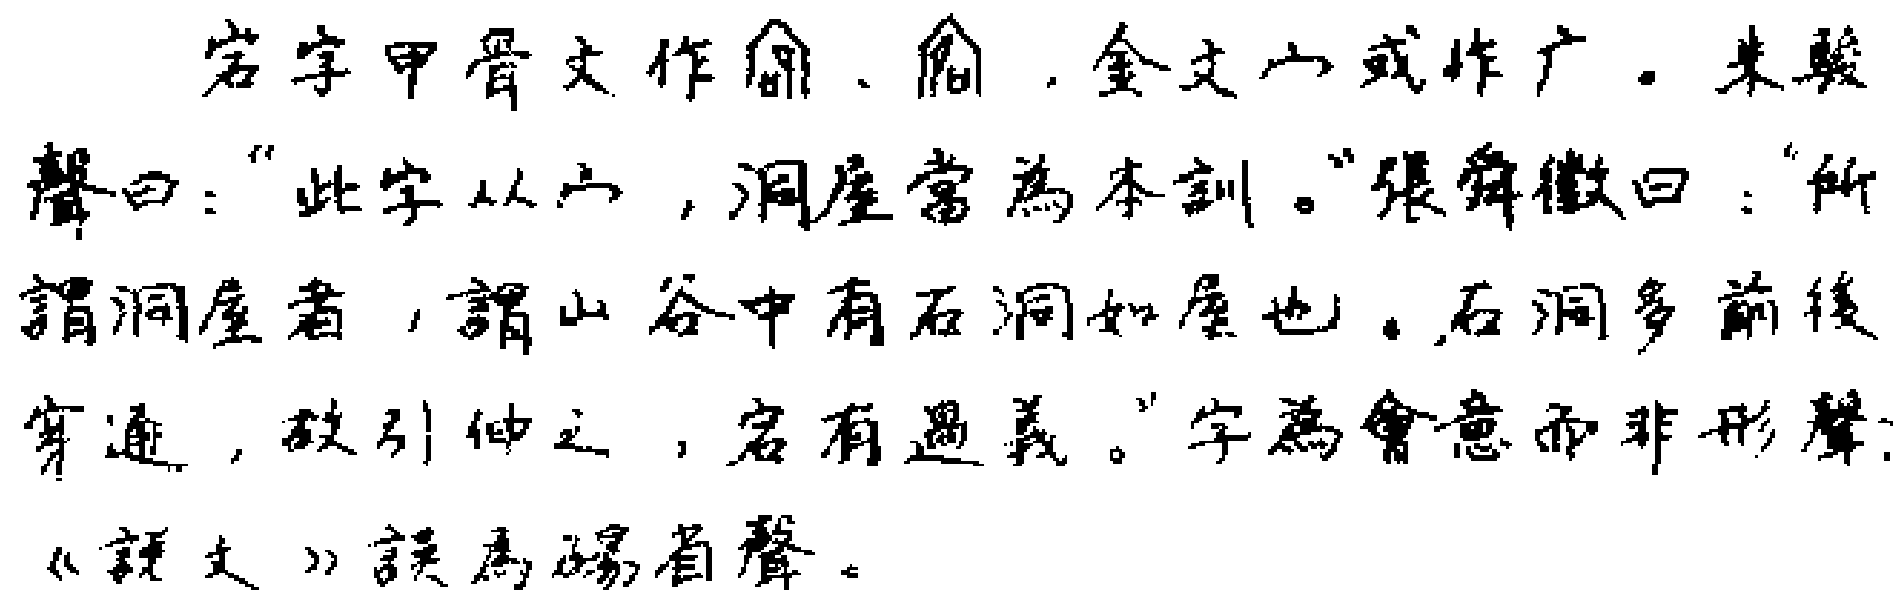 宕字甲骨文作、，金文宀或作广。朱駿
聲曰：“此字从宀，洞屋當為本訓。”張舜徽曰：“所
謂洞屋者，謂山谷中有石洞如屋也。石洞多前後
穿通，故引伸之，宕有過義。”字為會意而非形聲；
《説文》誤為碭省聲。